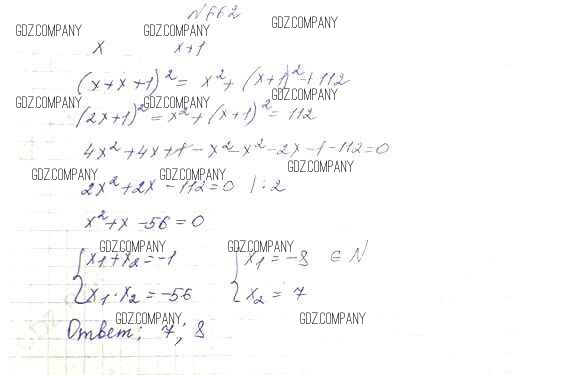 N 662
GDZ.COMPANY GDZ.COMPANY GDZ.COMPANY
x x+1
(x+x+1)² = x² + (x+1)² + 112
GDZ.COMPANY GDZ.COMPANY GDZ.COMPANY
(2x+1)² = x² + (x+1)² = 112
4x² + 4x + 1 - x² - x² - 2x - 1 - 112 = 0
GDZ.COMPANY GDZ.COMPANY GDZ.COMPANY
2x² + 2x - 112 = 0 | : 2
x² + x - 56 = 0
GDZ.COMPANY GDZ.COMPANY
x₁ + x₂ = -1 x₁ = -8 ∈ N
x₁ · x₂ = -56 x₂ = 7
GDZ.COMPANY GDZ.COMPANY
Ответ: 7; 8